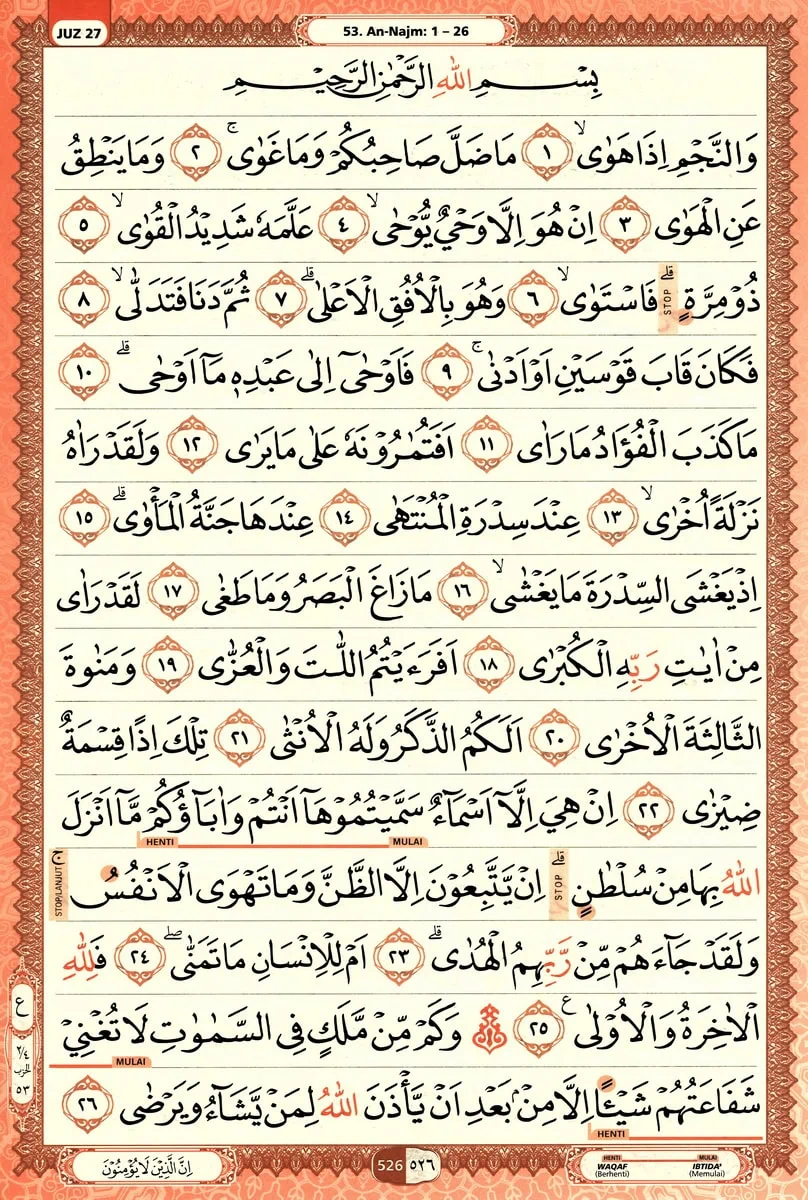 JUZ 27
53. An-Najm: 1 – 26
بِسْمِ اللّٰهِ الرَّحْمٰنِ الرَّحِيْمِ
وَالنَّجْمِ اِذَا هَوٰىۙ ١ مَا ضَلَّ صَاحِبُكُمْ وَمَا غَوٰىۚ ٢ وَمَا يَنْطِقُ
عَنِ الْهَوٰى ٣ اِنْ هُوَ اِلَّا وَحْيٌ يُّوْحٰىۙ ٤ عَلَّمَهٗ شَدِيْدُ الْقُوٰىۙ ٥
ذُوْ مِرَّةٍۗ STOP فَاسْتَوٰىۙ ٦ وَهُوَ بِالْاُفُقِ الْاَعْلٰىۗ ٧ ثُمَّ دَنَا فَتَدَلّٰىۙ ٨
فَكَانَ قَابَ قَوْسَيْنِ اَوْ اَدْنٰىۚ ٩ فَاَوْحٰىٓ اِلٰى عَبْدِهٖ مَآ اَوْحٰىۗ ١٠
مَا كَذَبَ الْفُؤَادُ مَا رَاٰى ١١ اَفَتُمٰرُوْنَهٗ عَلٰى مَا يَرٰى ١٢ وَلَقَدْ رَاٰهُ
نَزْلَةً اُخْرٰىۙ ١٣ عِنْدَ سِدْرَةِ الْمُنْتَهٰى ١٤ عِنْدَهَا جَنَّةُ الْمَأْوٰىۗ ١٥
اِذْ يَغْشَى السِّدْرَةَ مَا يَغْشٰىۙ ١٦ مَا زَاغَ الْبَصَرُ وَمَا طَغٰى ١٧ لَقَدْ رَاٰى
مِنْ اٰيٰتِ رَبِّهِ الْكُبْرٰى ١٨ اَفَرَءَيْتُمُ اللّٰتَ وَالْعُزّٰى ١٩ وَمَنٰوةَ
الثَّالِثَةَ الْاُخْرٰى ٢٠ اَلَكُمُ الذَّكَرُ وَلَهُ الْاُنْثٰى ٢١ تِلْكَ اِذًا قِسْمَةٌ
ضِيْزٰى ٢٢ اِنْ هِيَ اِلَّآ اَسْمَاۤءٌ سَمَّيْتُمُوْهَآ اَنْتُمْ وَاٰبَاۤؤُكُمْ مَّآ اَنْزَلَ
MULAI HENTI
اللّٰهُ بِهَا مِنْ سُلْطٰنٍۗ STOP اِنْ يَّتَّبِعُوْنَ اِلَّا الظَّنَّ وَمَا تَهْوَى الْاَنْفُسُۚ STOP/LANJUT
وَلَقَدْ جَاۤءَهُمْ مِّنْ رَّبِّهِمُ الْهُدٰىۗ ٢٣ اَمْ لِلْاِنْسَانِ مَا تَمَنّٰىۖ ٢٤ فَلِلّٰهِ
الْاٰخِرَةُ وَالْاُوْلٰى ࣖ ٢٥ ۞ وَكَمْ مِّنْ مَّلَكٍ فِى السَّمٰوٰتِ لَا تُغْنِيْ
MULAI
شَفَاعَتُهُمْ شَيْـًٔا اِلَّا مِنْۢ بَعْدِ اَنْ يَّأْذَنَ اللّٰهُ لِمَنْ يَّشَاۤءُ وَيَرْضٰى ٢٦
HENTI
ع
٢/٤
الحزب
٥٣
اِنَّ الَّذِيْنَ لَا يُؤْمِنُوْنَ
526 ٥٢٦
HENTI MULAI
WAQAF IBTIDA'
(Berhenti) (Memulai)